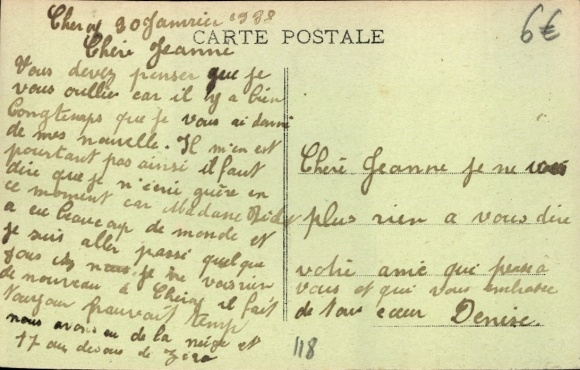 30 Janvrier 1938
6€
CARTE POSTALE
Chère Jeanne
Vous devez penser que je
vous oullier car il y a bien
longtemps que je vous ai donné
de mes nouvelle. Il m'en est
pourtant pas ainsi il faut
dire que je n'écrie guère en
ce moment car Madame
a eu beaucoup de monde et
je suis aller passé quelque
jous chez nous. je ne vois rien
de nouveau à il fait
toujour temp
nous avons eu de la neige et
17 au desous de zéro
Chère Jeanne je ne vois
plus rien a vous dire
votre amie qui pense à
vous et qui vous embrasse
de tout cœur Denise.
118